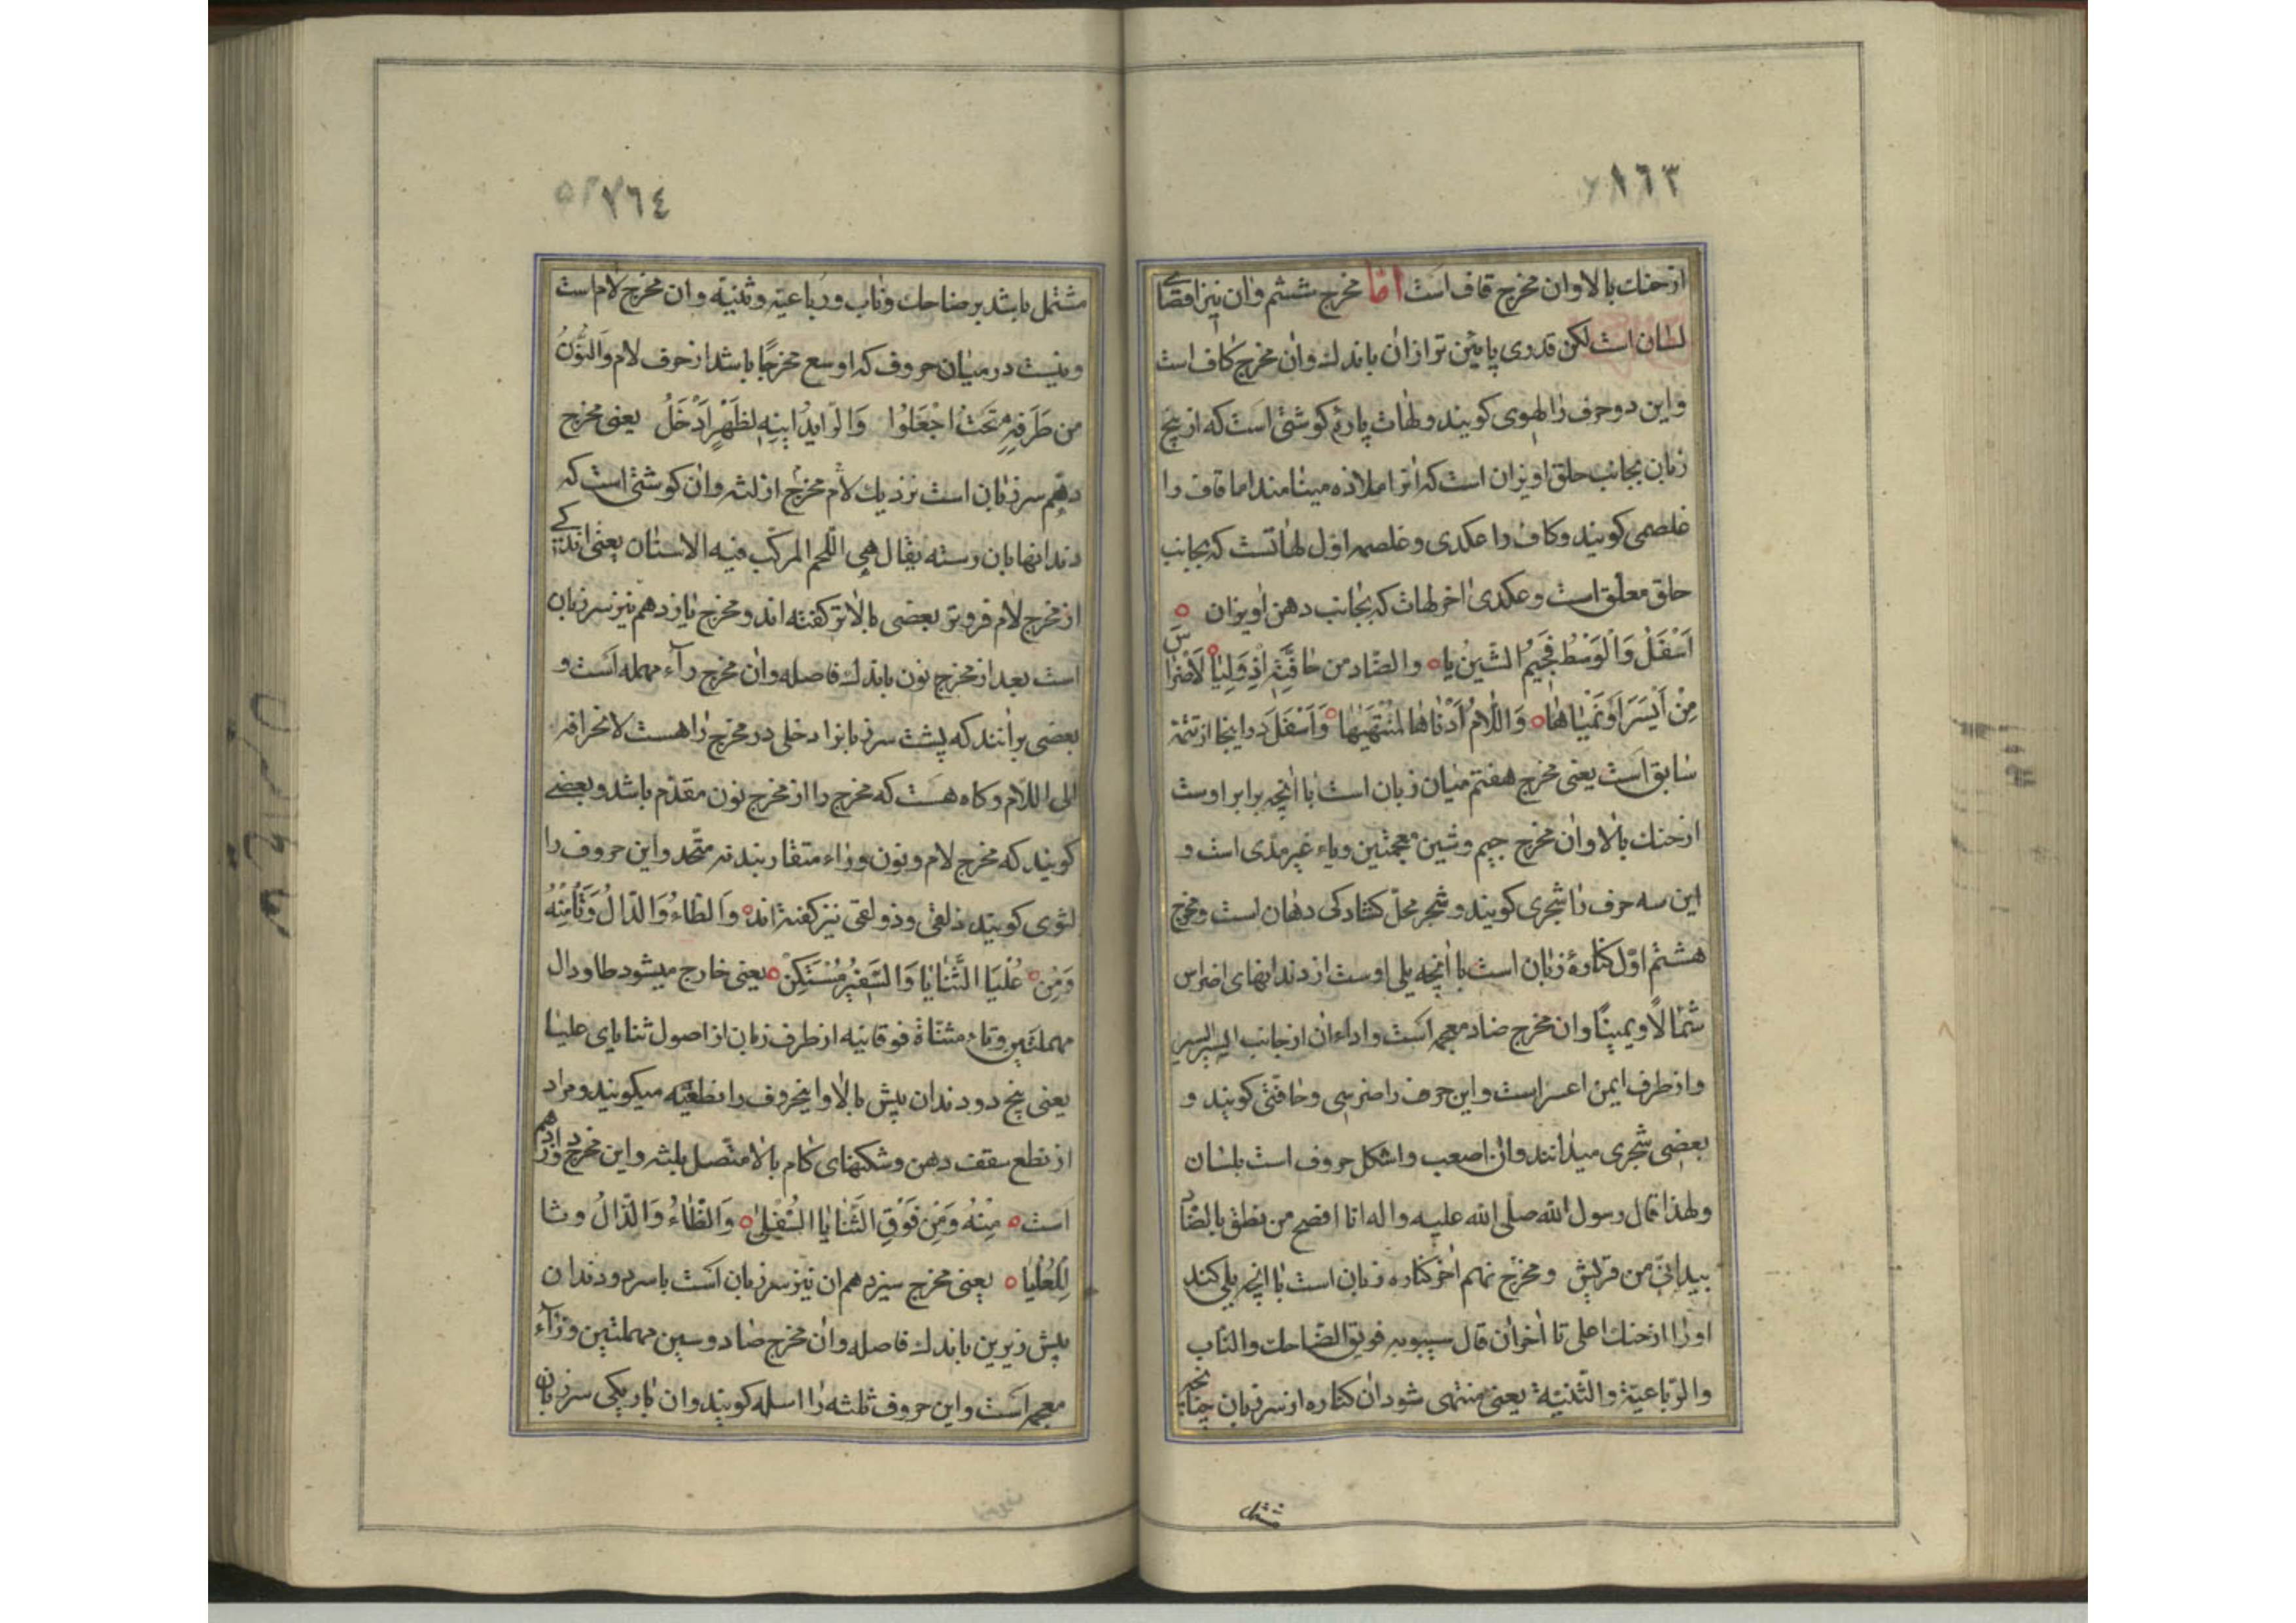 ١٦٣
از حنك بالا وان مخرج قاف است اما مخرج ششم وان نیز اقصای
لسان است لکن قدری پایئن تر از ان باندك وان مخرج کاف است
واین دو حرف را لهوی کویند و لهات پارۀ کوشتی است که از بیخ
زبان بجانب حلق اویزان است که انرا ملاذه مینامند اما قاف را
غلصمی کویند وکاف را عکدی وغلصمه اول لهاتست که بجانب
حلق معلق است وعکدی اخر لهات که بجانب دهن اویزان
اَسْفَلُ وَالْوَسْطُ فَجِیمُ الشّینُ یا والضّاد من حافَتِهِ اِذْ وَلِیَا لَاضْرَاسَ
مِنْ أَیْسَرَ اَوْ یُمْنَاهَا وَاللّامُ أَدْنَاهَا لِمُنْتَهَیهَا وَاَسْفَلَ در اینجا از تتمۀ
سابق است یعنی مخرج هفتم میان زبان است با انچه برابر اوست
از حنك بالا وان مخرج جیم وشین معجمتین ویاء غیر مدی است و
این سه حرف را شجری کویند وشجر محلّ کشادکی دهان است ومخرج
هشتم اوّل کنارۀ زبان است با انچه یلی اوست از دندانهای اضراس
شمالاً ویمیناً وان مخرج ضاد معجمه است واداء ان از جانب الیسر الیسر
واز طرف ایمن اعسر است واین حرف را ضرسی وحافتی کویند و
بعضی شجری میدانند وان اصعب واشکل حروف است بلسان
ولهذا قال رسول الله صلی الله علیه واله انا افصح من نطق بالضاد
بیدانی من قریش ومخرج نهم اخر کناره زبان است با انچه یلی کند
اورا از حنك اعلی تا اخر ان قال سیبویه فویق الضاحك والناب
والرباعیة والثنیّة یعنی منتهی شود ان کناره از سر زبان چنانچه
مشتمل
٧٦٤
مشتمل باشد بر ضاحك وناب ورباعیه وثنیّه وان مخرج لام است
ونیست در میان حروف که اوسع مخرجًا باشد از حرف لام وَالنُّونُ
من طَرَفِهِ تَحْتُ اجْعَلُوا وَالرّا یُدَانِیهِ لِظَهْرٍ اَدْخَلُ یعنی مخرج
دهم سر زبان است نزدیك لام مخرج از لثه وان کوشتی است که
دندانها بان رسته یقال هی اللحم المرکب فیه الاسنان یعنی اندکی
از مخرج لام فروتر بعضی بالاتر کفته اند ومخرج یازدهم نیز سر زبان
است بعد از مخرج نون باندك فاصله وان مخرج رآء مهمله است و
بعضی برانند که پشت سر زبانرا دخلی در مخرج را هست لانحرافه
الی اللام وکاه هست که مخرج را از مخرج نون مقدّم باشد وبعضی
کویند که مخرج لام ونون وراء متقاربند نه متّحد واین حروف را
لثوی کویند ذلقی وذولقی نیز کفته اند وَالطّاءُ وَالدّالُ وَتَا مِنْهُ
وَمِنْ عُلْیَا الثَّنَایَا وَالصَّفیرُ مُسْتَکِنْ یعنی خارج میشود طا ودال
مهملتین وتاء مثنّاة فوقانیه از طرف زبان از اصول ثنایای علیا
یعنی بیخ دو دندان پیش بالا واینحروف را نطعیّه میکویند ومراد
از نطع سقف دهن وشکنهای کام بالا متّصل بلثه واین مخرج دوازدهم
است مِنْهُ وَمِنْ فَوْقِ الثَّنَایَا السُّفْلیٰ وَالظّاءُ وَالذّالُ وثا
لِلْعُلْیَا یعنی مخرج سیزدهم ان نیز سر زبان است با سر دو دندان
پیش زیرین باندك فاصله وان مخرج صاد وسین مهملتین وزآء
معجمه است واین حروف ثلثه را اسله کویند وان باریکی سر زبان